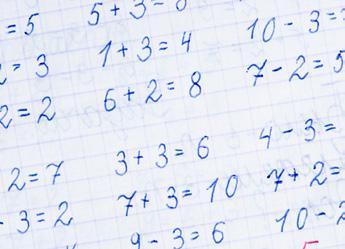 = 5 5 + 3 = 8 10 - 3 =
= 3 1 + 3 = 4 7 - 2 = 5
2 = 2 6 + 2 = 8
2 = 7 3 + 3 = 6 4 - 3 =
- 3 = 2 7 + 3 = 10 7 + 2 =
9 - 3 = 6 10 - 2